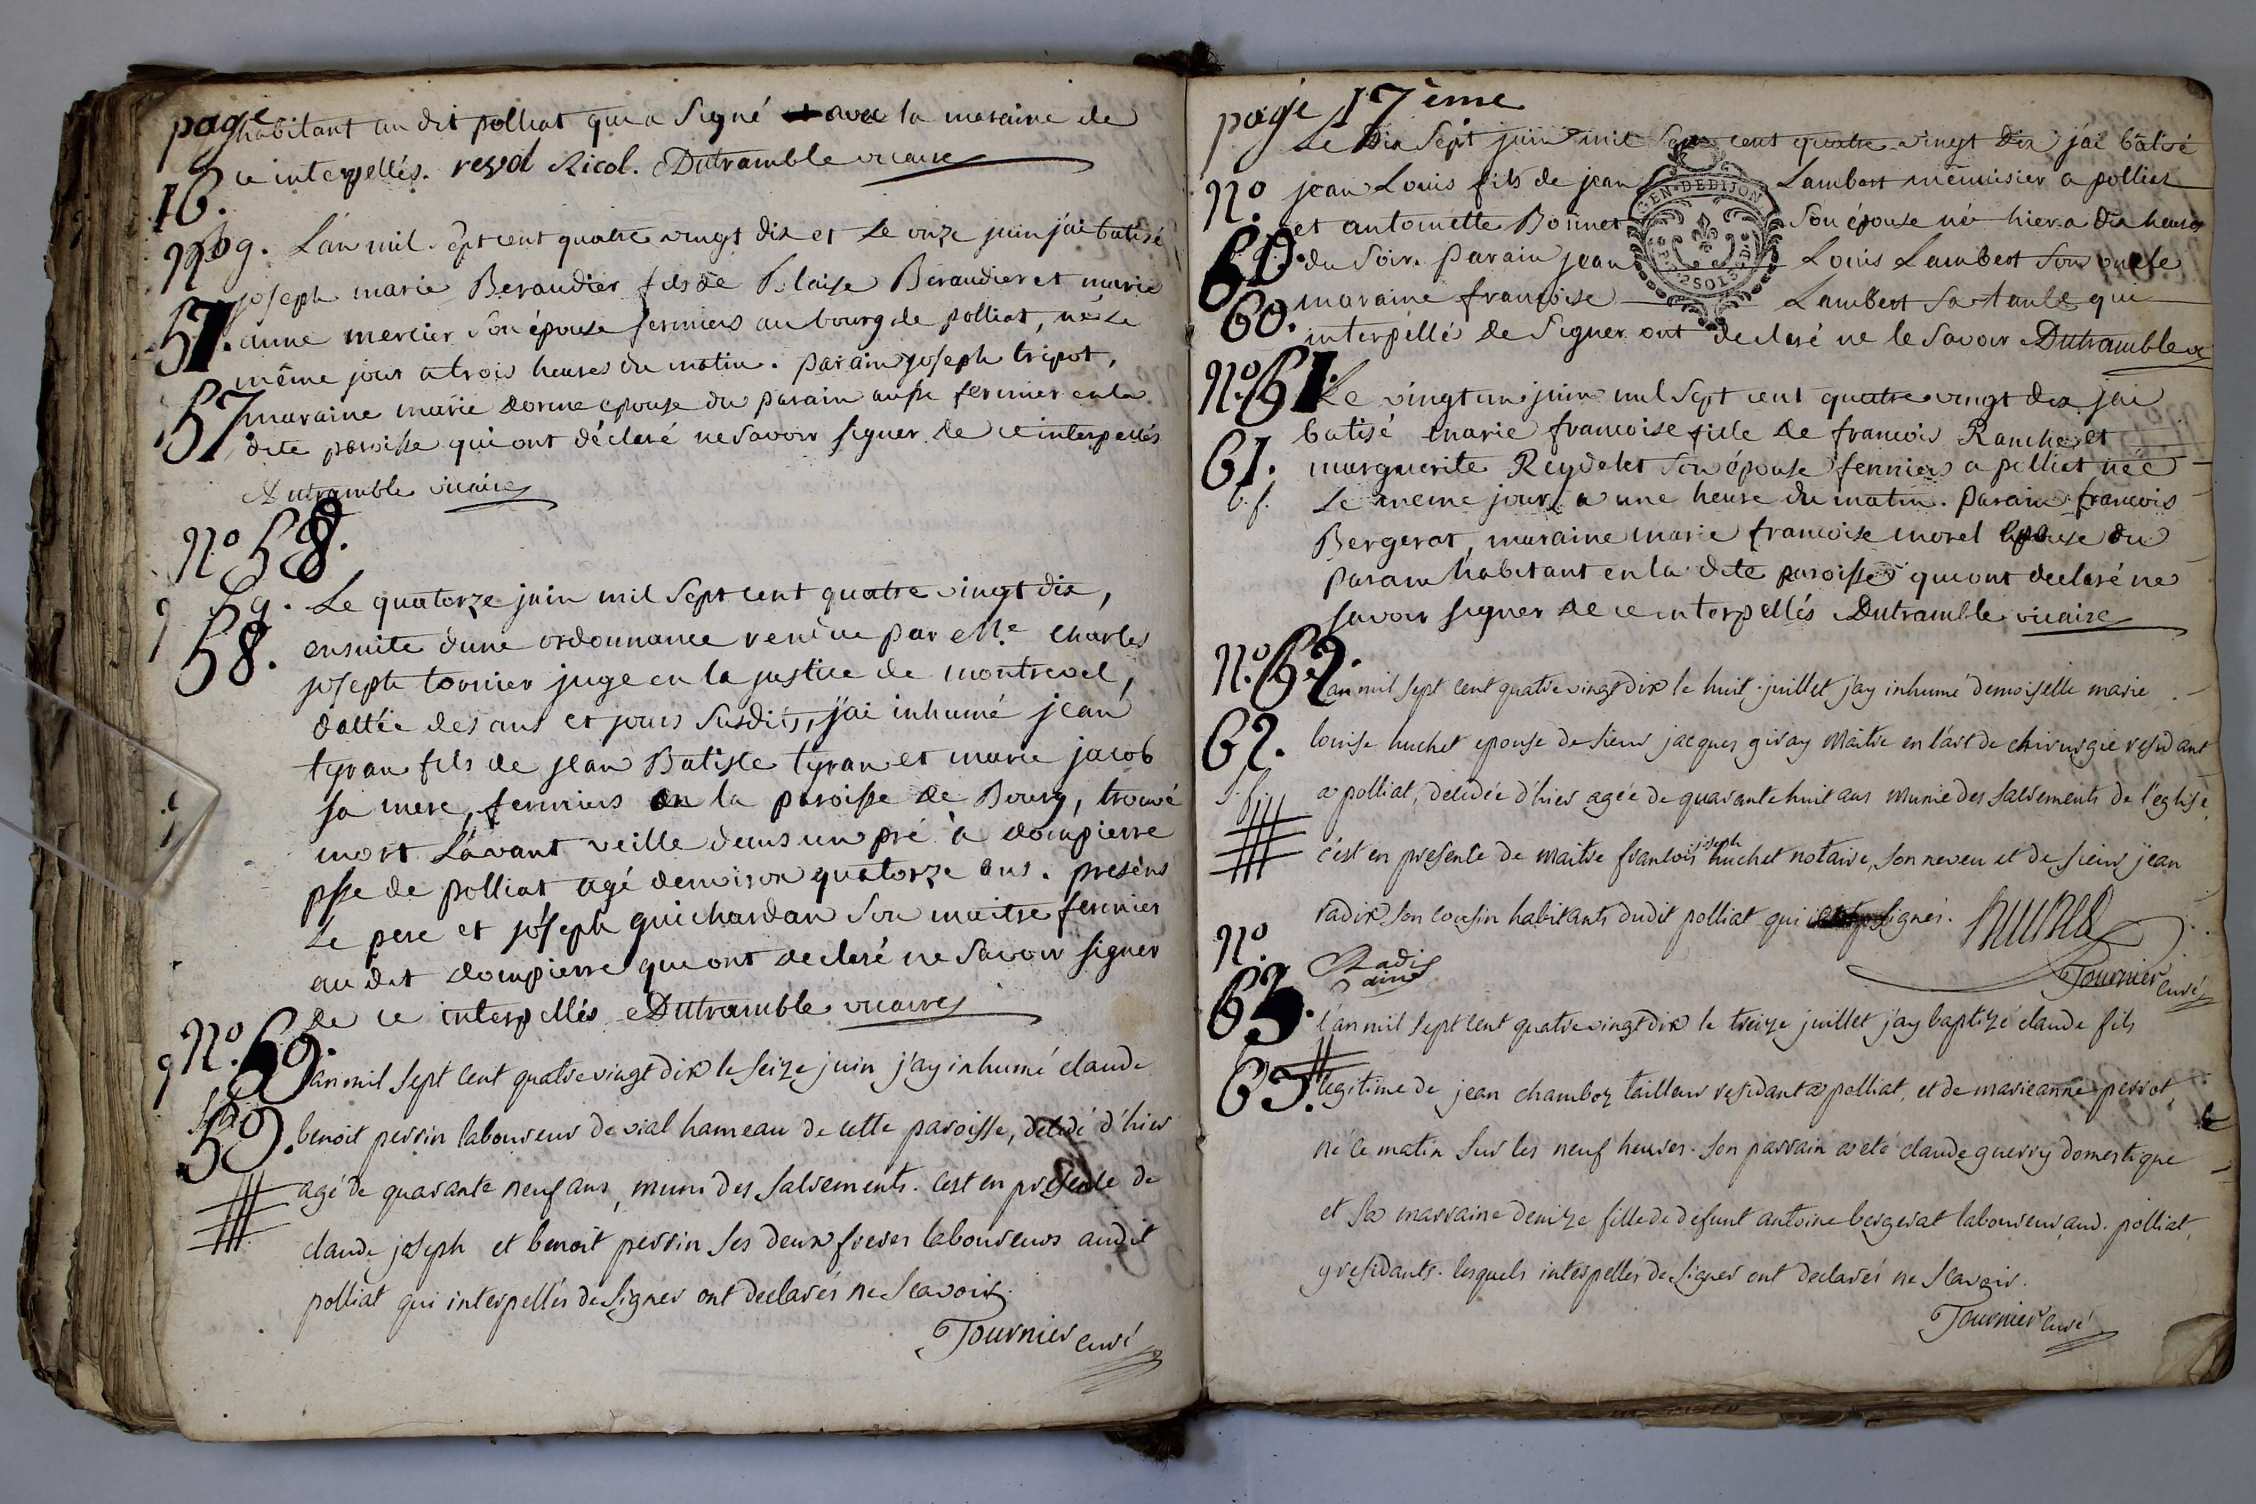 page
16.
habitant au dit polliat qui a Signé avec la maraine de
ce interpellés. revol Ricol. Dutramble vicaire
No
57.
57
L'an mil Sept cent quatre vingt dix et Le onze juin j'ai batisé
joseph marie Beraudier fils de Blaise Beraudier et marie
anne mercier Son épouse fermiers au bourg de polliat, né Le
même jour a trois heures du matin. parain joseph tripot,
maraine marie dorme epouse du parain ausse fermier en la
dite paroisse qui ont déclaré ne Savoir signer de ce interpellés
Dutramble vicaire
No 58.
58.
Le quatorze juin mil Sept cent quatre vingt dix,
ensuite d'une ordonnance renduë par Me. charles
joseph tornier juge en la justice de montrevel,
dattée des ans et jours Susdits, j'ai inhumé jean
tyran fils de jean Batiste tyran et marie jacob
sa mere, fermiers en la paroisse de Bourg, trouvé
mort L'avant veille dans un pré a dompierre
psse de polliat agé d'environ quatorze ans. presens
Le pere et joseph guichardan Son maitre fermier
au dit dompierre qui ont declaré ne Savoir signer
de ce interpellés Dutramble vicaire
No. 59.
59.
L'an mil sept cent quatre vingt dix le seize juin j'ay inhumé claude
benoit perrin laboureur de vial hameau de cette paroisse, décédé d'hier
agé de quarante neuf ans, muni des sacrements. c'est en presence de
claude joseph et benoit perrin ses deux freres laboureurs audit
polliat qui interpellés de signer ont declarés ne scavoir.
Tournier curé
page 17ème
No
60.
60.
Le Dix Sept juin mil Sept cent quatre vingt Dix j'ai batisé
jean Louis fils de jean Lambert menuisier a polliat
et antoinette Bonnet Son épouse né hier a dix heures
du Soir. parain jean Louis Lambert Son oncle
maraine francoise Lambert Sa tante qui
interpéllé de Signer ont declaré ne le Savoir Dutramble
GEN. DE DIJON
No. 61.
61.
b. f.
Le vingt un juin mil Sept cent quatre vingt dix j'ai
batisé marie francoise fille de francois Ranche et
marguerite Reydelet Son épouse fermiers a polliat née
Le meme jour a une heure du matin. parain francois
Bergerat, maraine marie francoise morel epouse du
parain habitant en la dite paroisse qui ont declaré ne
savoir signer de ce interpellés Dutramble vicaire
No. 62.
62.
L'an mil sept cent quatre vingt dix le huit juillet j'ay inhumé demoiselle marie
louise huchet epouse de sieur jacques giray maitre en l'art de chirurgie residant
a polliat, decedée d'hier agée de quarante huit ans munie des sacrements de l'eglise,
c'est en presence de maitre francois joseph huchet notaire, son neveu et de sieur jean
radix son cousin habitants dudit polliat qui signés. huchet
Radis
ainé
Tournier curé
No.
63.
63.
L'an mil sept cent quatre vingt dix le treize juillet j'ay baptizé claude fils
legitime de jean chamboz tailleur residant a polliat, et de marieanne perrot,
né le matin sur les neuf heures. son parrain a eté claude guerry domestique
et sa marraine denize fille de defunt antoine bergerat laboureur aud. polliat,
y residants. lesquels interpellés de signer ont declarés ne scavoir.
Tournier curé